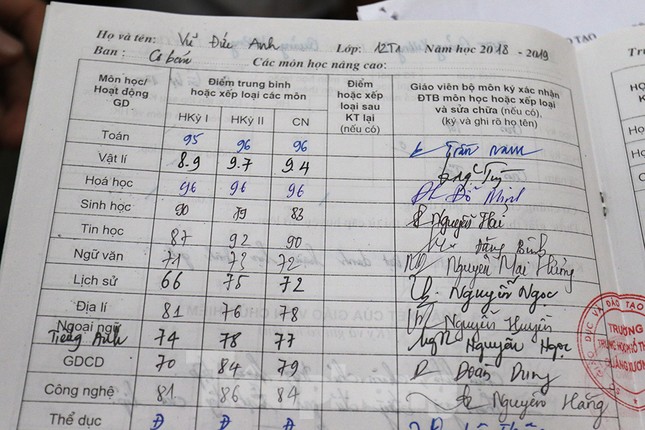 Họ và tên: Vũ Đức Anh Lớp: 12T1 Năm học 2018 - 2019
Ban: Cơ bản Các môn học nâng cao:
Môn học/ Hoạt động GD
Điểm trung bình hoặc xếp loại các môn
HKỳ I HKỳ II CN
Điểm hoặc xếp loại sau KT lại (nếu có)
Giáo viên bộ môn ký xác nhận ĐTB môn học hoặc xếp loại và sửa chữa (nếu có), (ký và ghi rõ họ tên)
Toán 95 96 96 Trần Nam
Vật lí 8.9 9.7 9.4
Hoá học 96 96 96 Đỗ Minh
Sinh học 90 79 83 Nguyễn Hải
Tin học 87 92 90 Đặng Bình
Ngữ văn 71 73 72 Nguyễn Mai Hưng
Lịch sử 66 75 72 Nguyễn Ngọc
Địa lí 81 76 78 Nguyễn Huyền
Ngoại ngữ Tiếng Anh 74 78 77 Nguyễn Ngọc
GDCD 70 84 79 Đoàn Dung
Công nghệ 81 86 84 Nguyễn Hằng
Thể dục Đ Đ Đ
ĐÀO TẠO
TRƯỜNG
TRUNG HỌC PHỔ TH
QUẢNG XƯƠNG